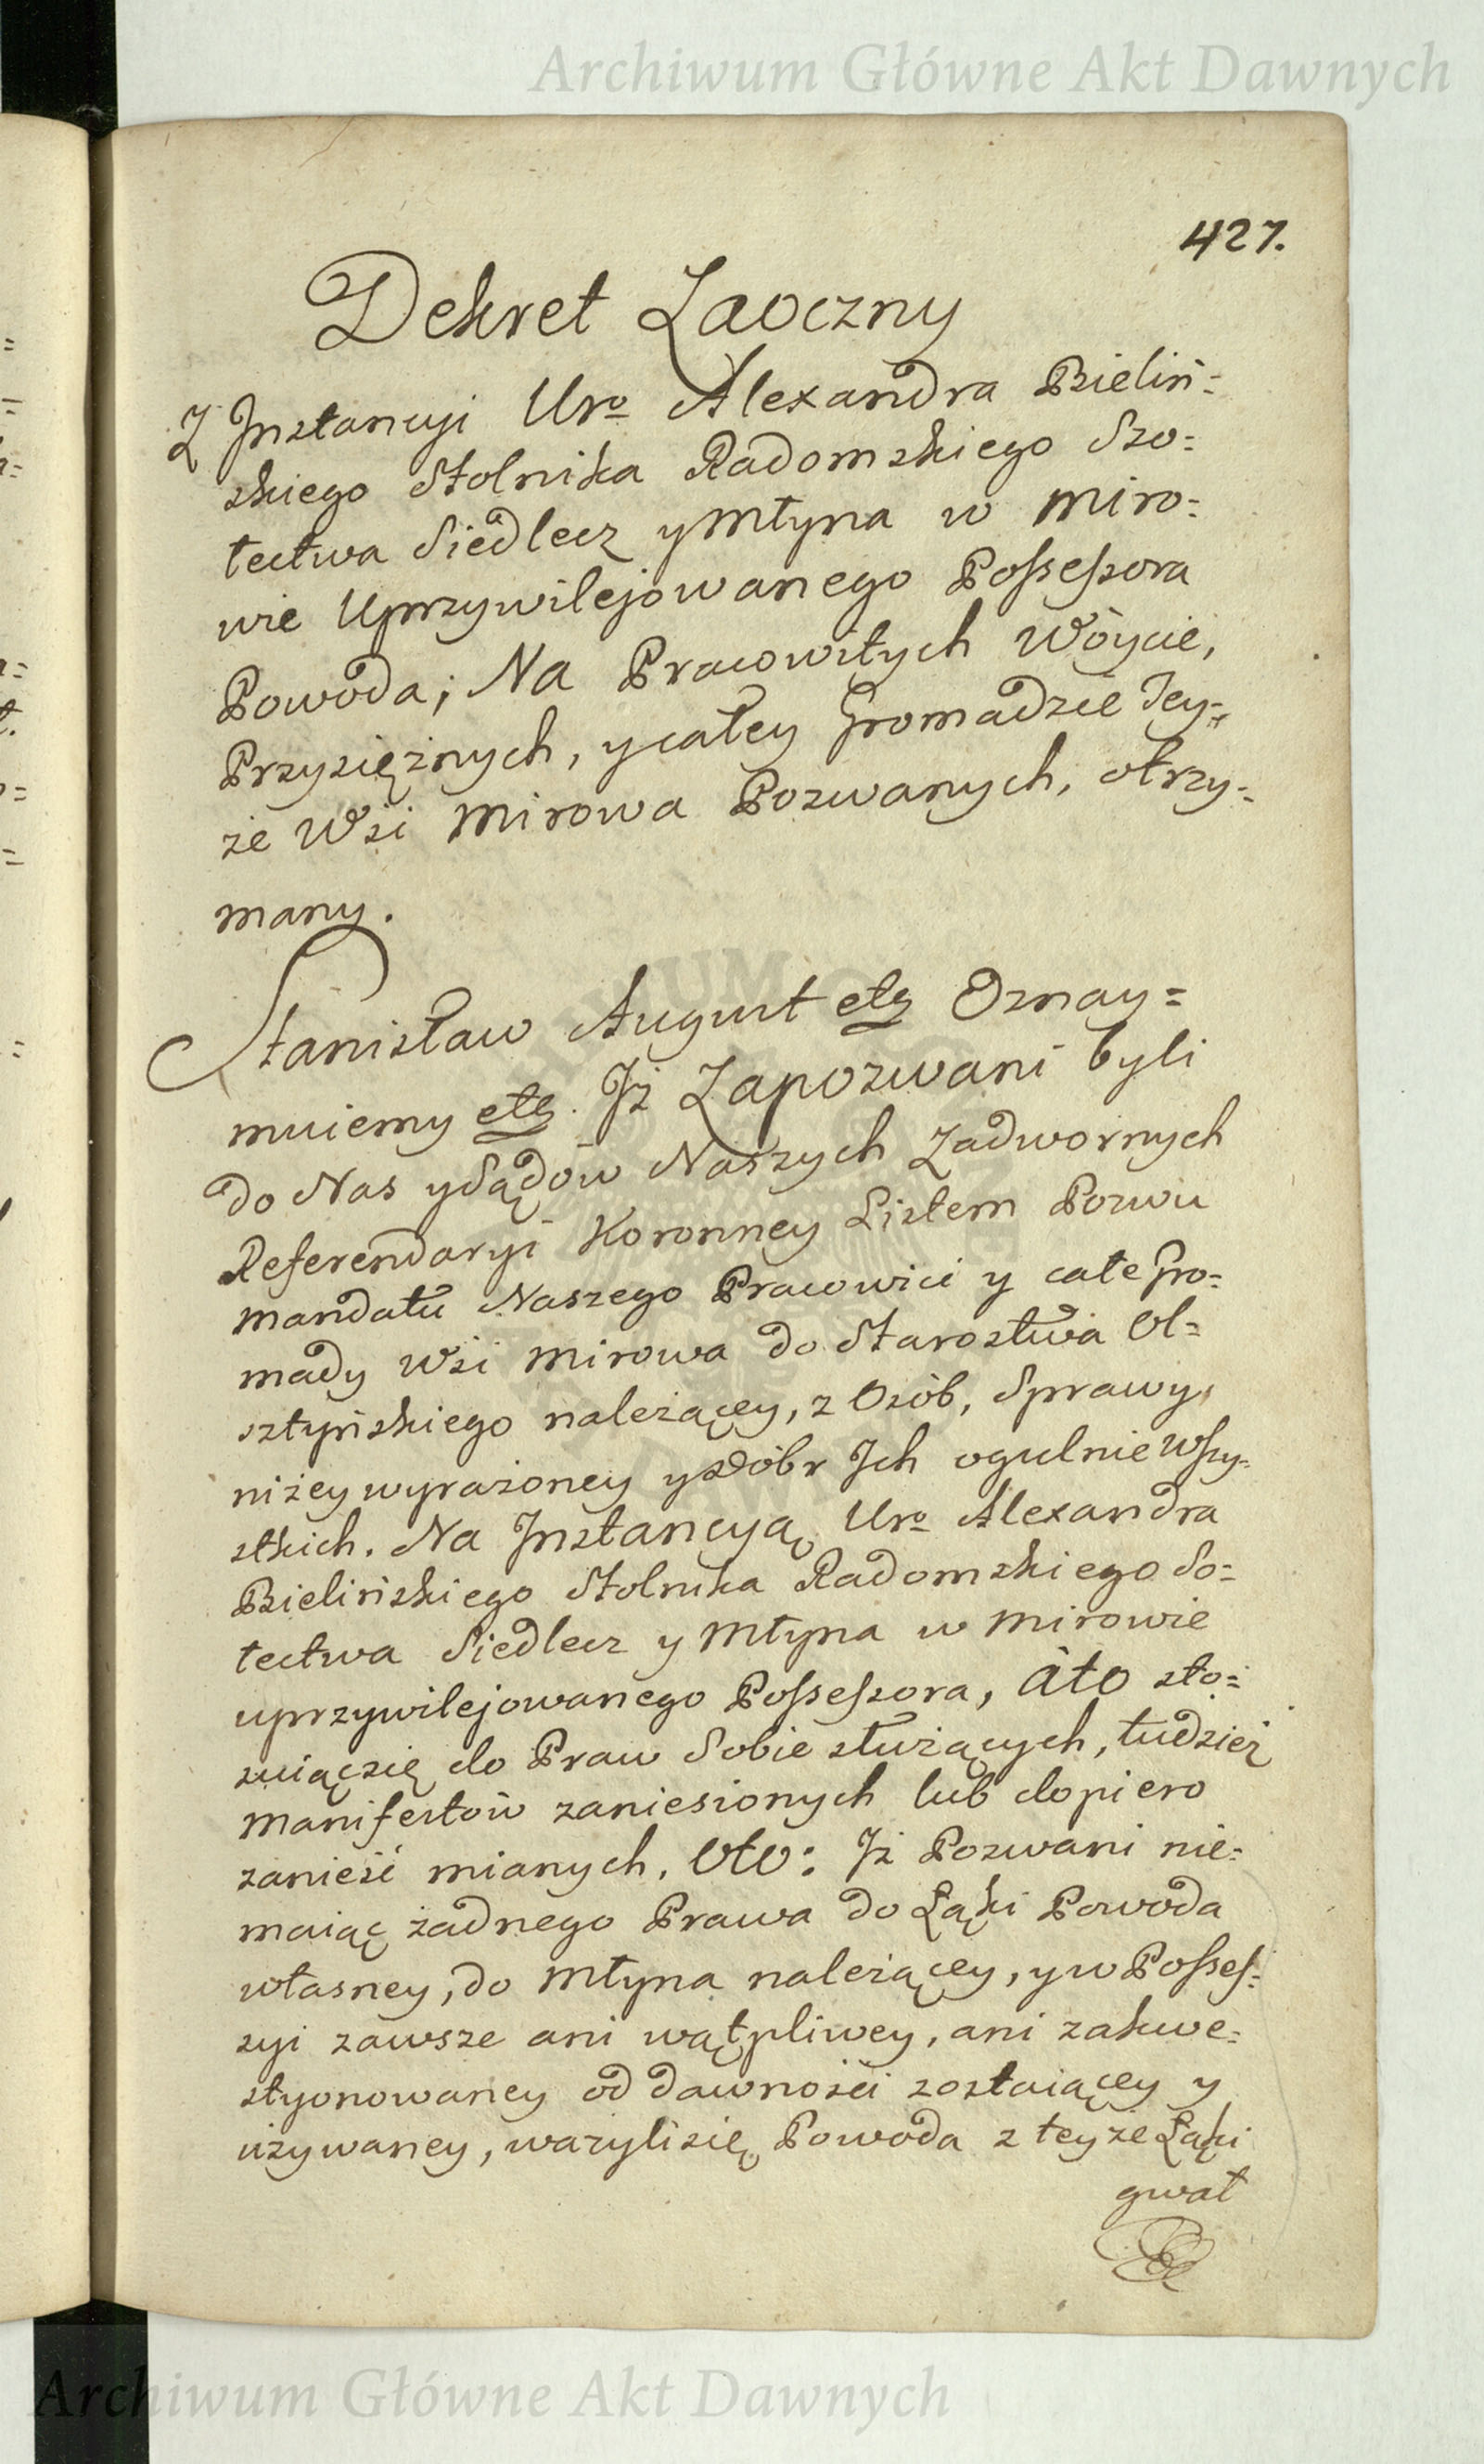 Archiwum Główne Akt Dawnych
427.
Dekret Zaoczny
Z Instancyi Uro Alexandra Bieliń=
skiego Stolnika Radomskiego Szo=
łectwa Siedlecz y Młyna w Miro=
wie Uprzywilejowanego Possessora
Powoda; Na Pracowitych Wóycie,
Przysiężnych, y całey Gromadzie Tey=
że Wsi Mirowa Pozwanych, otrzy=
many.
Stanisław August etc Oznay=
muiemy etc. Iż Zapozwani byli
do Nas y Sądów Naszych Zadwornych
Referendaryi Koronney Listem Pozwu
Mandatu Naszego Pracowici y całe Gro=
mady Wsi Mirowa do Starostwa Ol=
sztyńskiego należącey, z Osób, Sprawy
niżey wyrażoney y Dóbr Ich ogulnie Wszy=
stkich. Na Instancyą Uro Alexandra
Bielińskiego Stolnika Radomskiego So=
łectwa Siedlecz y Młyna w Mirowie
uprzywilejowanego Possessora, Ato sto=
suiąc się do Praw Sobie służących, tudzież
Manifestów zaniesionych lub dopiero
zanieść mianych, Oto: Iż Pozwani nie=
maiąc żadnego Prawa do Łąki Powoda
własney, do Młyna należącey, y w Posses=
syi zawsze ani wątpliwey, ani zakwe=
styonowaney od dawności zostaiącey y
używaney, ważyli się Powoda z teyże Łąki
gwał
Archiwum Główne Akt Dawnych